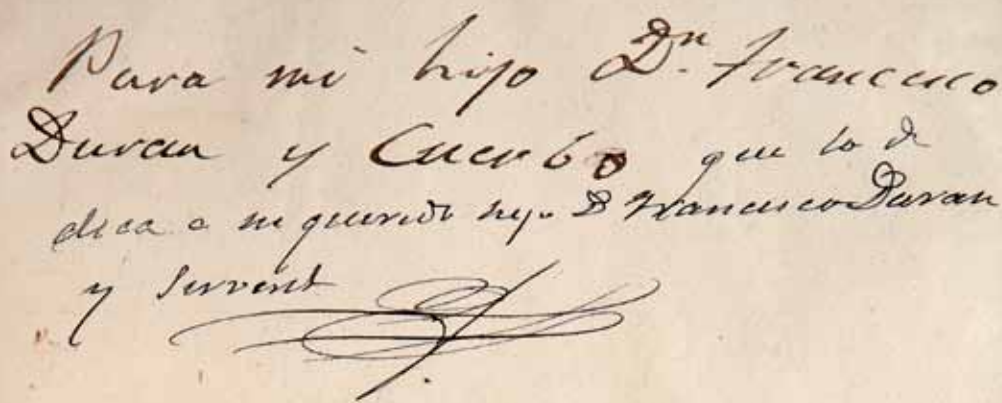 Para mi hijo Dn. Francisco
Duran y Cuerbo que lo de
dica a su querido hijo D Francisco Duran
y Servent